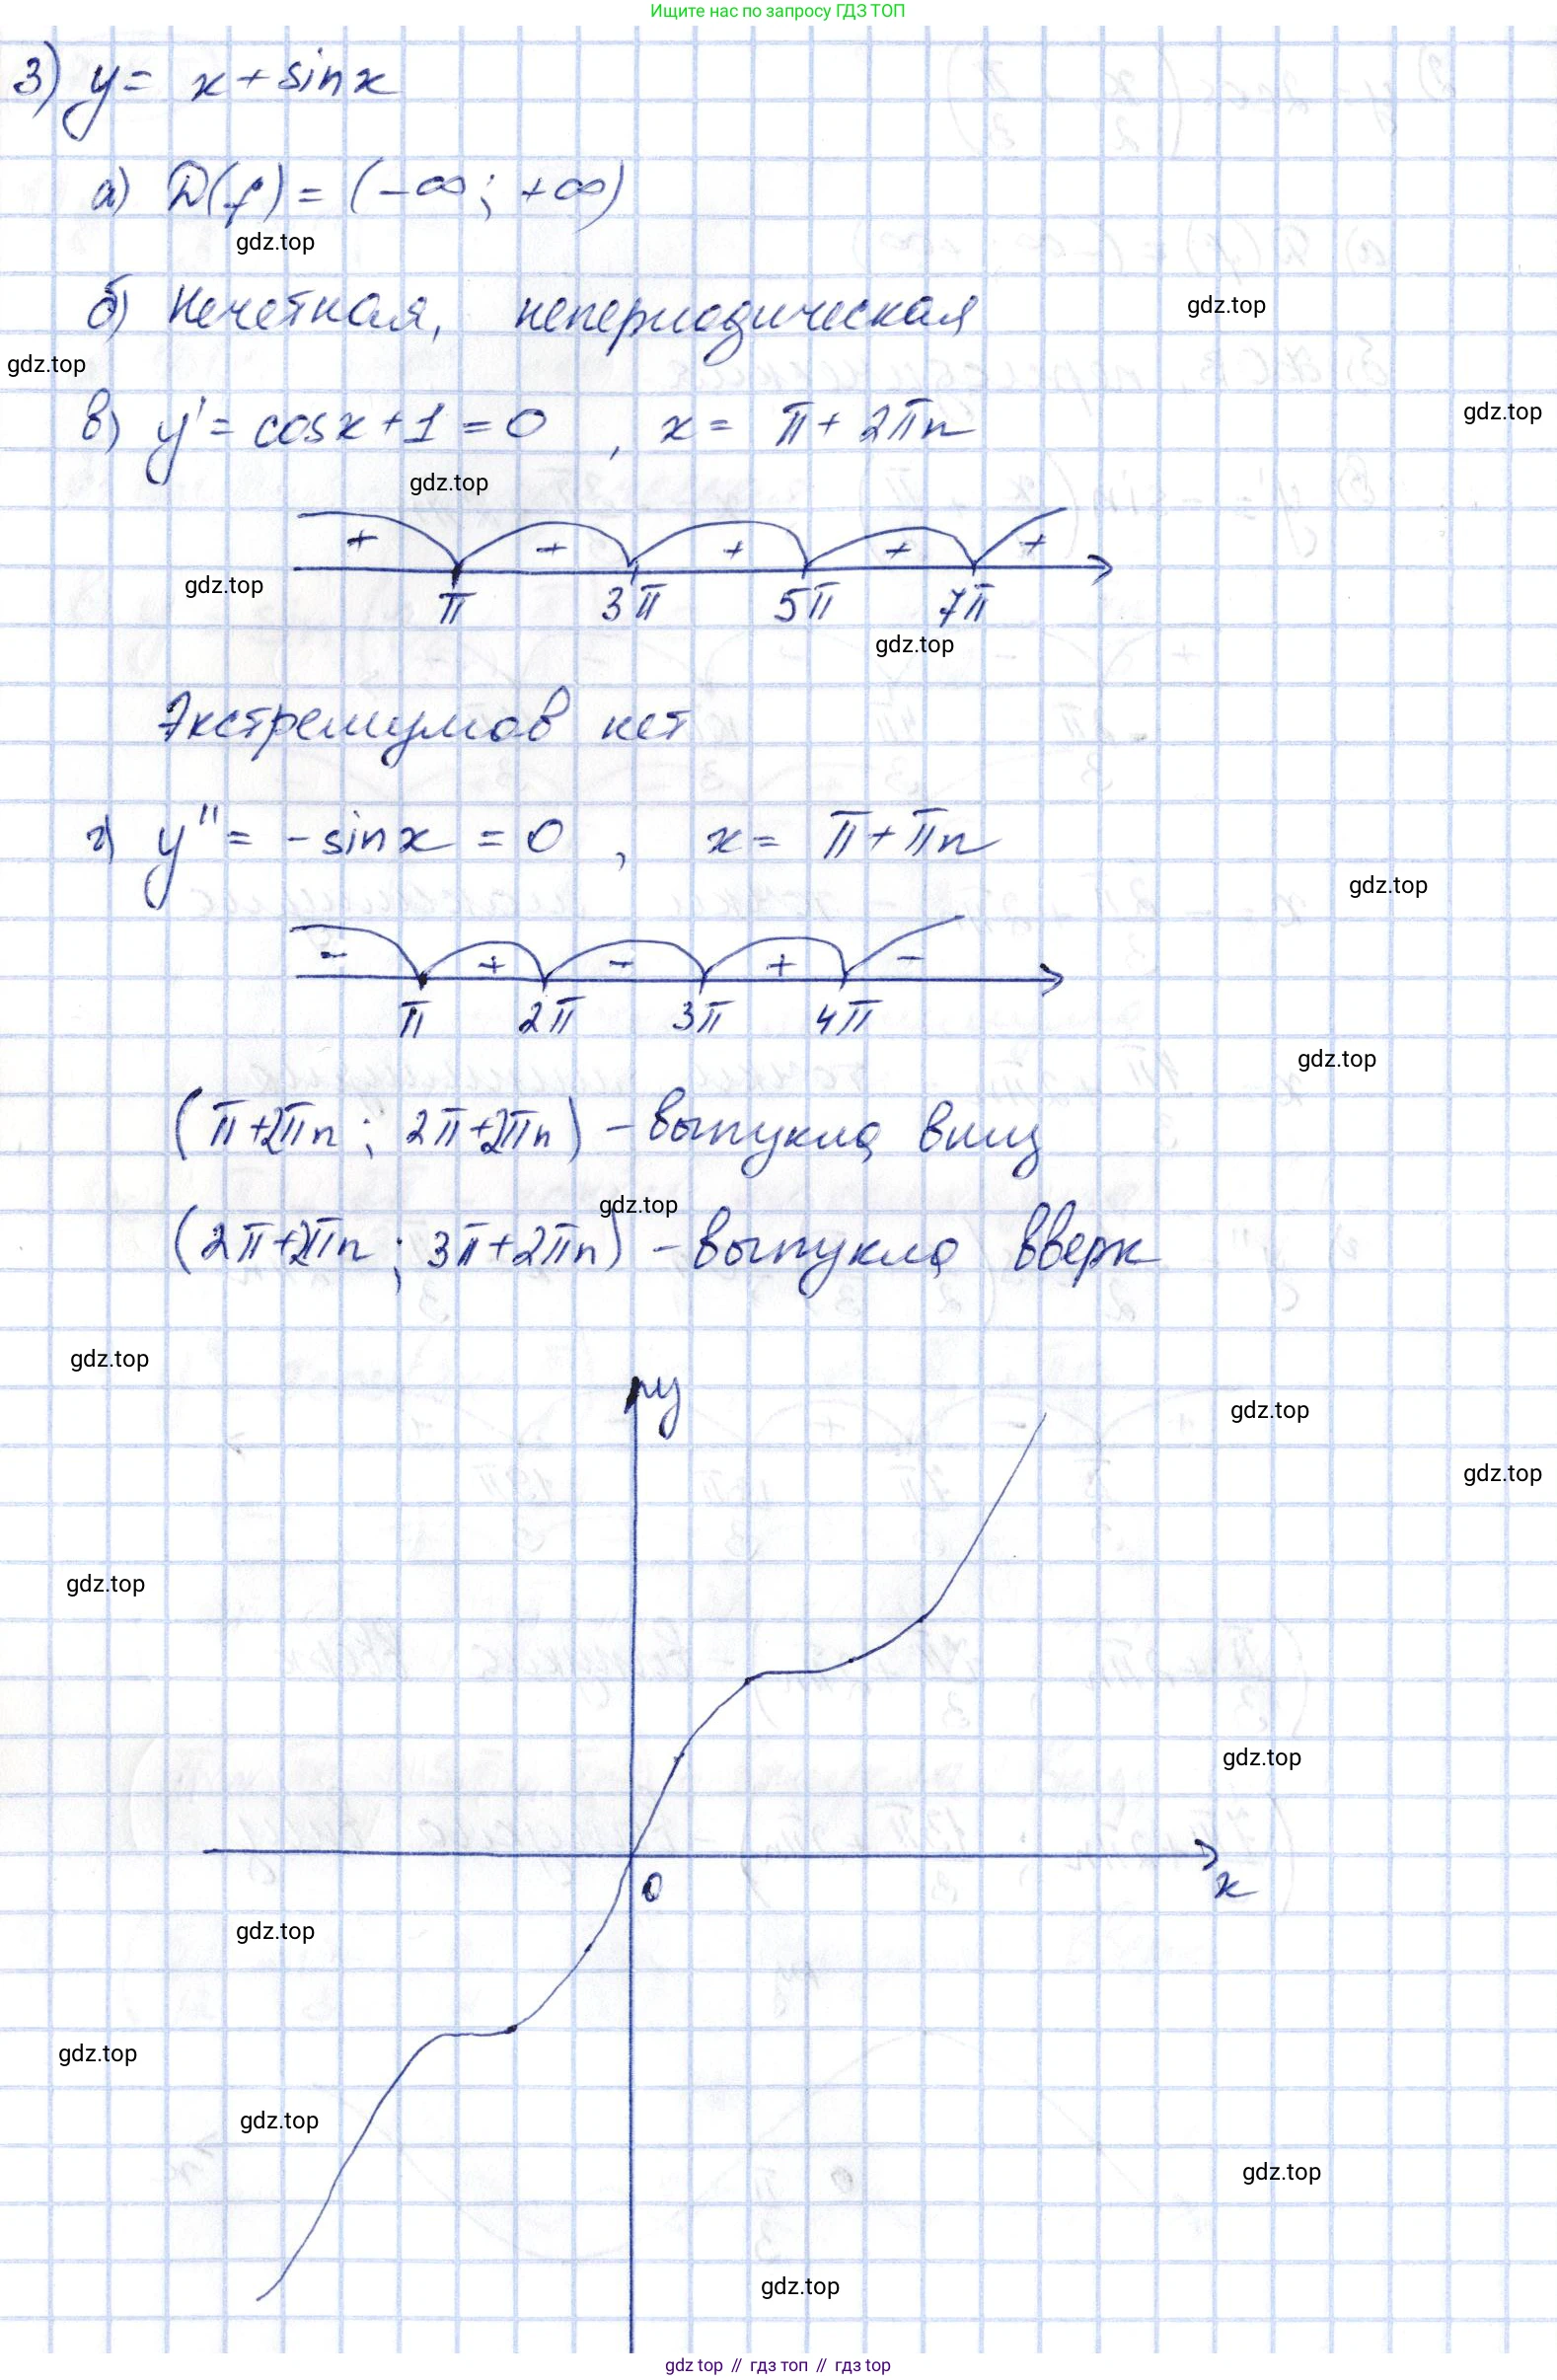 Ищите нас по запросу ГДЗ ТОП
3) y = x + sinx
а) D(f) = (-∞; +∞)
gdz.top
б) Нечетная, непериодическая
gdz.top
gdz.top
в) y' = cosx + 1 = 0 , x = π + 2πn
gdz.top
gdz.top
+ + + + +
gdz.top
π 3π 5π 7π
gdz.top
Экстремумов нет
г) y'' = -sinx = 0 , x = π + πn
gdz.top
- + - + -
π 2π 3π 4π
gdz.top
(π+2πn ; 2π+2πn) - выпукла вниз
gdz.top
(2π+2πn ; 3π+2πn) - выпукла вверх
gdz.top
y
gdz.top
gdz.top
gdz.top
gdz.top
0
x
gdz.top
gdz.top
gdz.top
gdz.top
gdz.top
gdz top // гдз топ // гдз top